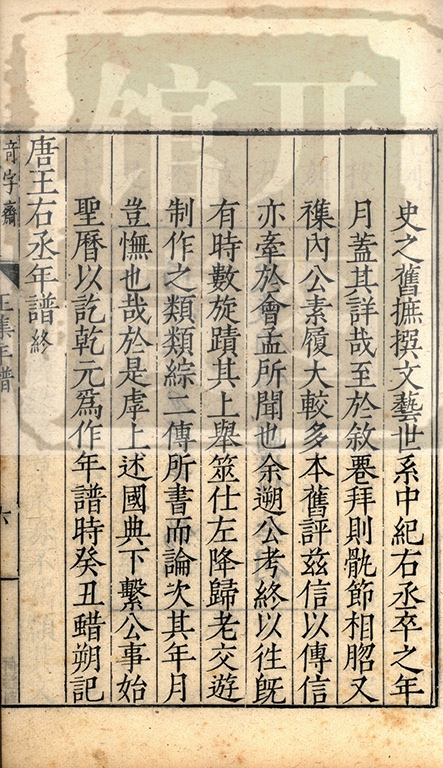 史之舊摭撰文藝世系中紀右丞卒之年
月蓋其詳哉至於敘遷拜則骫節相䏚又
襍內公素履大較多本舊評茲信以傳信
亦牽於會孟所聞也余遡公考終以徃旣
有時數旋蹟其上舉筮仕左降歸老交遊
制作之類類綜二傳所書而論次其年月
豈憮也哉於是虖上述國典下繫公事始
聖曆以訖乾元爲作年譜時癸丑蜡朔記
唐王右丞年譜終
奇字齋
王集年譜
六